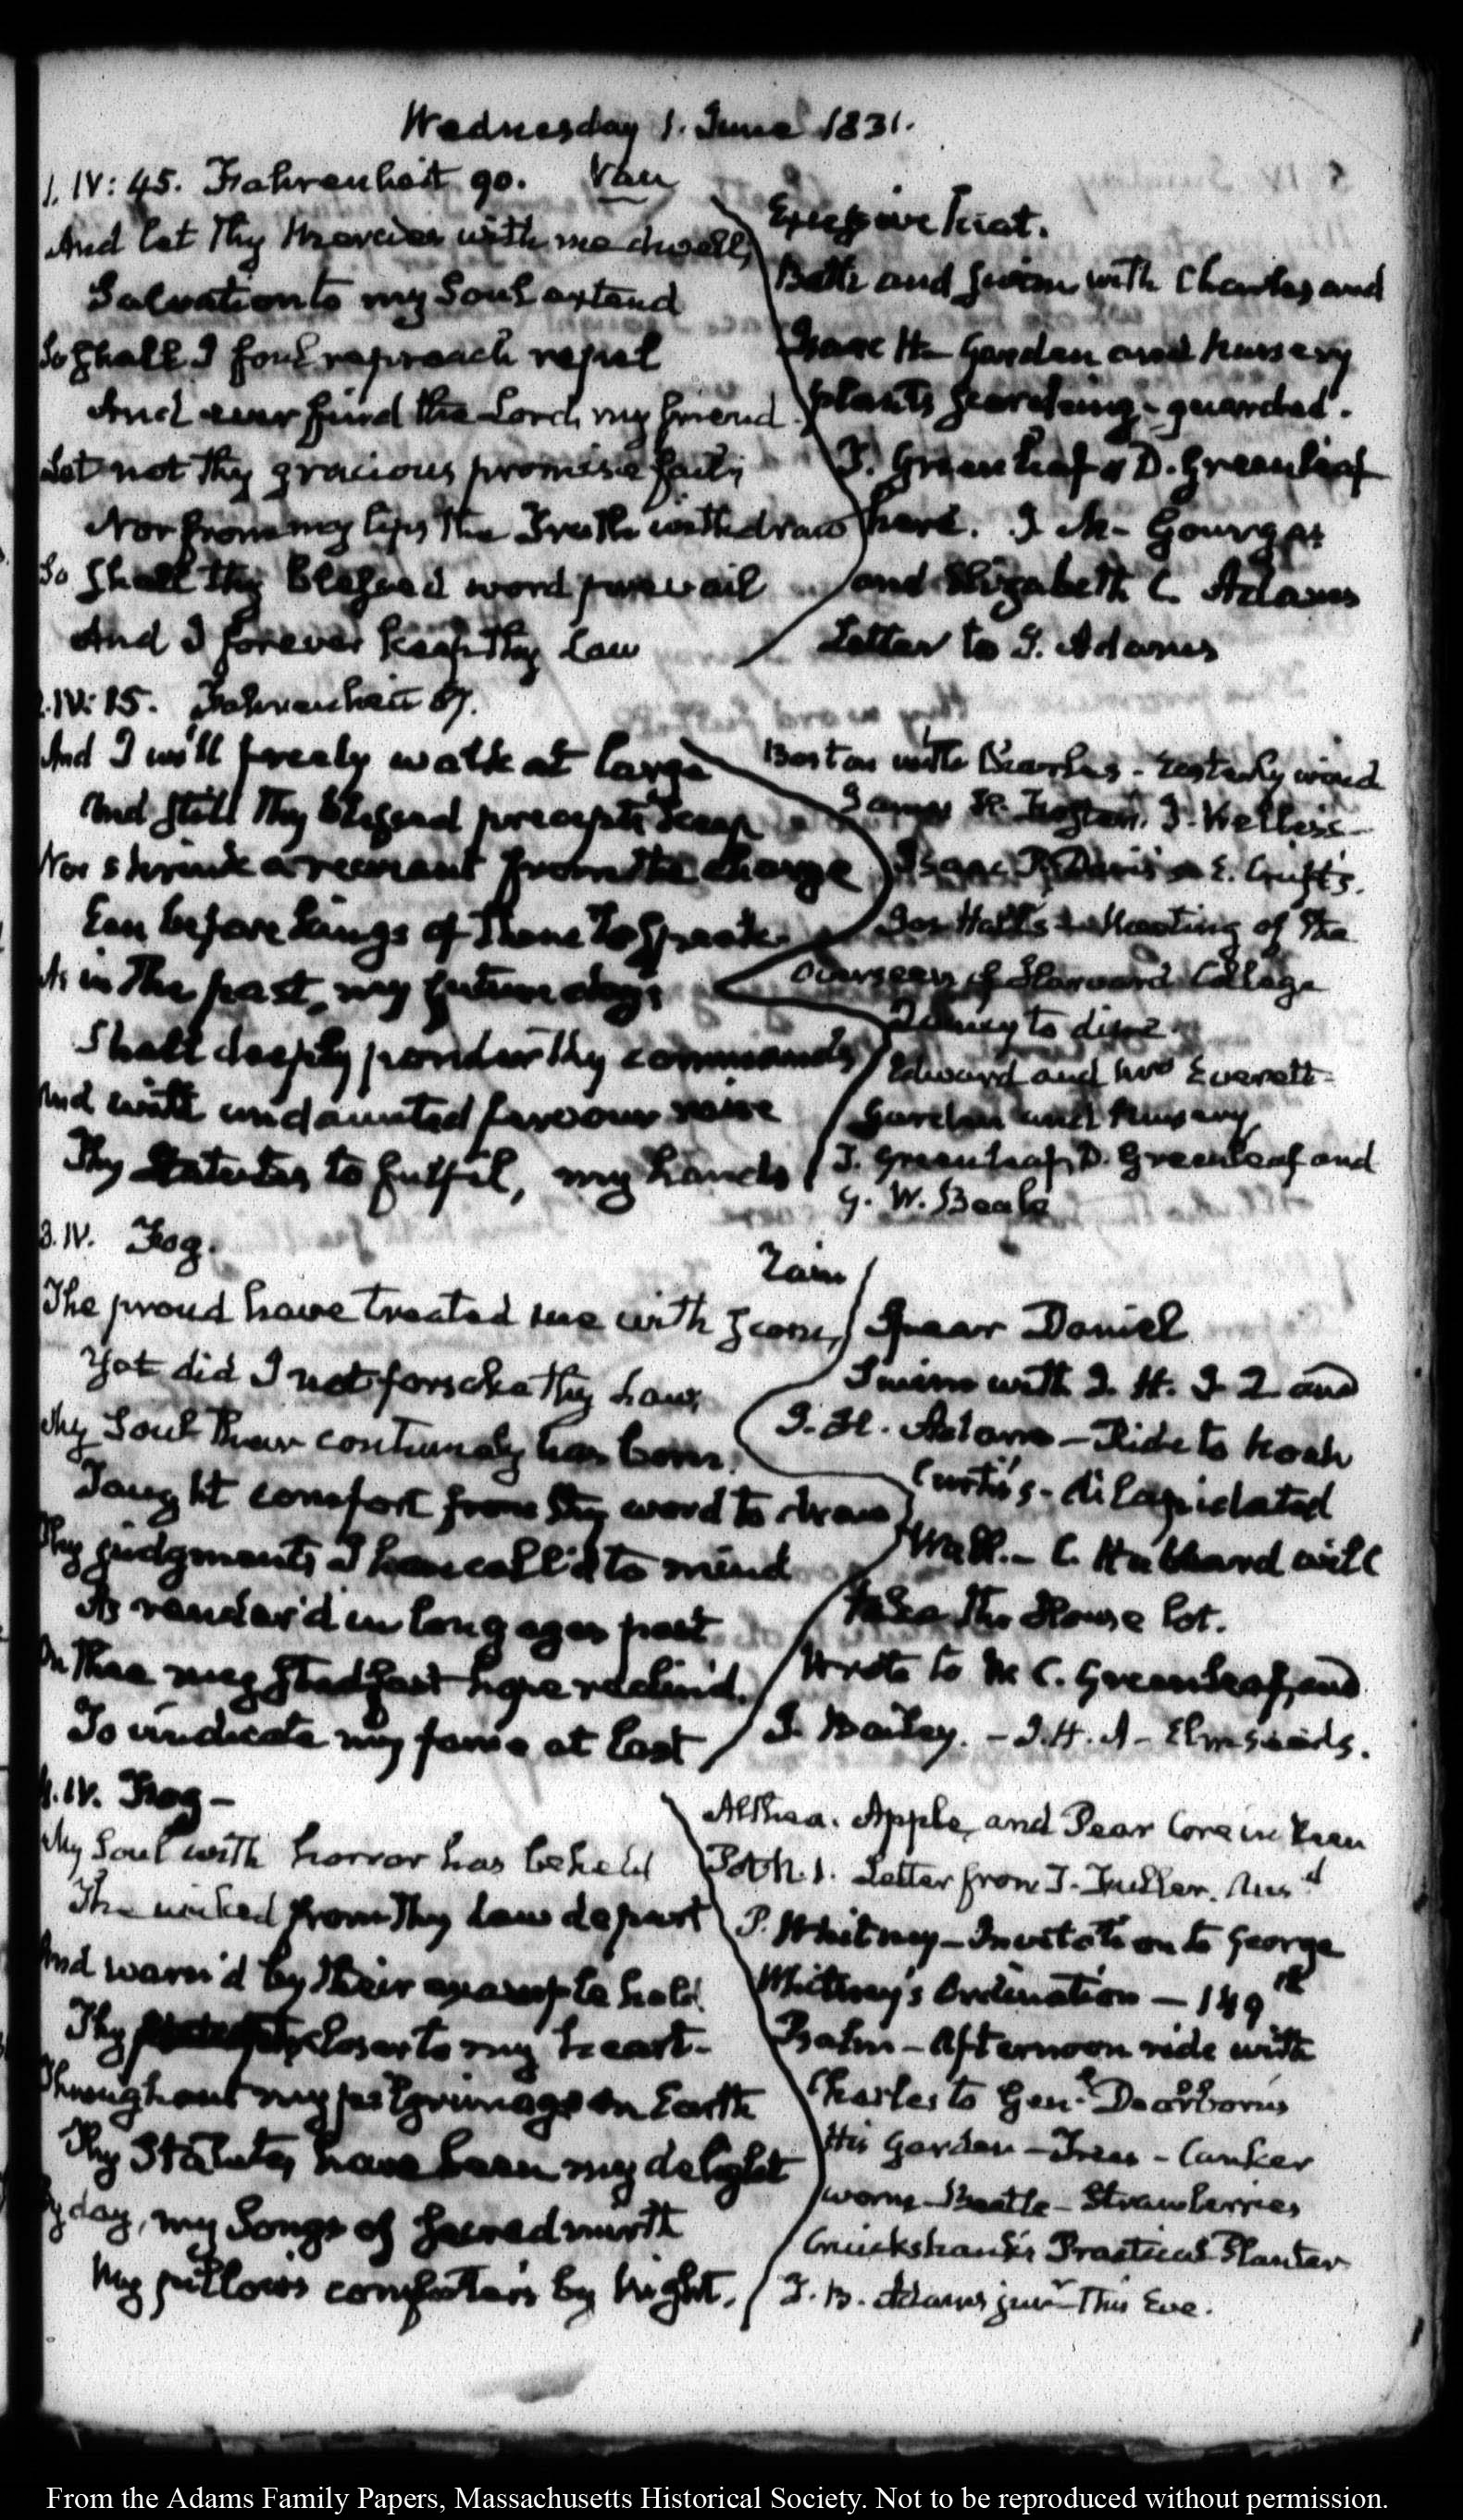 Wednesday 1. June 1831.
1. IV: 45. Fahrenheit 90. Vau
And let thy Mercies with me dwell,
Salvation to my Soul extend
So shall I foul reproach repel
And ever find the Lord, my friend.
Let not thy gracious promise fail,
Nor from my lips the Truth withdraw
So shall thy blessed word prevail
And I forever keep thy Law
Excessive heat.
Bath and swim with Charles and
Isaac H— Garden and Nursery
plants scorching - guarded.
T. Greenleaf & D. Greenleaf
here. J M- Gourgas
and Elizabeth C. Adams
Letter to J. Adams
2. IV: 15. Fahrenheit 87.
And I will freely walk at large
And still thy blessed precepts keep
Nor shrink a recreant from the charge
Even before Kings of them to speak.
As in the past, my future days
Shall deeply ponder thy commands,
And with undaunted fervour raise
Thy Statutes to fulfil, my hands
Boston with Charles - Easterly wind
James H. Foster. J.
Isaac P. Davis E. Cruft's.
Jos Hall's - Meeting of the
Overseers of Harvard College
Quincy to dine.
Edward and Mrs Everett-
Garden and Nursery
T. Greenleaf, D. Greenleaf and
G. W. Beale
3. IV. Fog. Zain
The proud have treated me with scorn,
Yet did I not forsake thy Law,
My Soul their contumely has borne.
Taught comfort from thy word to draw
Thy judgments I have call'd to mind
As render'd in long ages past
On thee my stedfast hope reclin'd.
To vindicate my fame at last
Spear Daniel
Swim with I. H. J 2 and
I. H. Adams — Ride to Noah
Curtis's - dilapidated
Wall. — C. Hubbard will
take the House lot.
Wrote to M C. Greenleaf, and
J. Bailey. — I. H. A — Elm seeds.
4. IV. Fog —
My Soul with horror has beheld
The wicked from thy Law depart
And warn'd by their example held
Thy closer to my heart.
Throughout my pilgrimage on Earth
Thy Statutes have been my delight
By day, my Songs of sacred mirth
My pillow's comforters by Night.
Althea. Apple, and Pear Core in
Pot N. 1. Letter from T. Fuller. Ansd
P. Whitney — Invitation to George
Whitney's Ordination — 149th
Psalm — Afternoon ride with
Charles to Genl Dearborn's
His Garden — Trees - Canker
worm — Beetle - Strawberries
Cruickshank's Practical Planter
T. B. Adams junr This Eve.
From the Adams Family Papers, Massachusetts Historical Society. Not to be reproduced without permission.